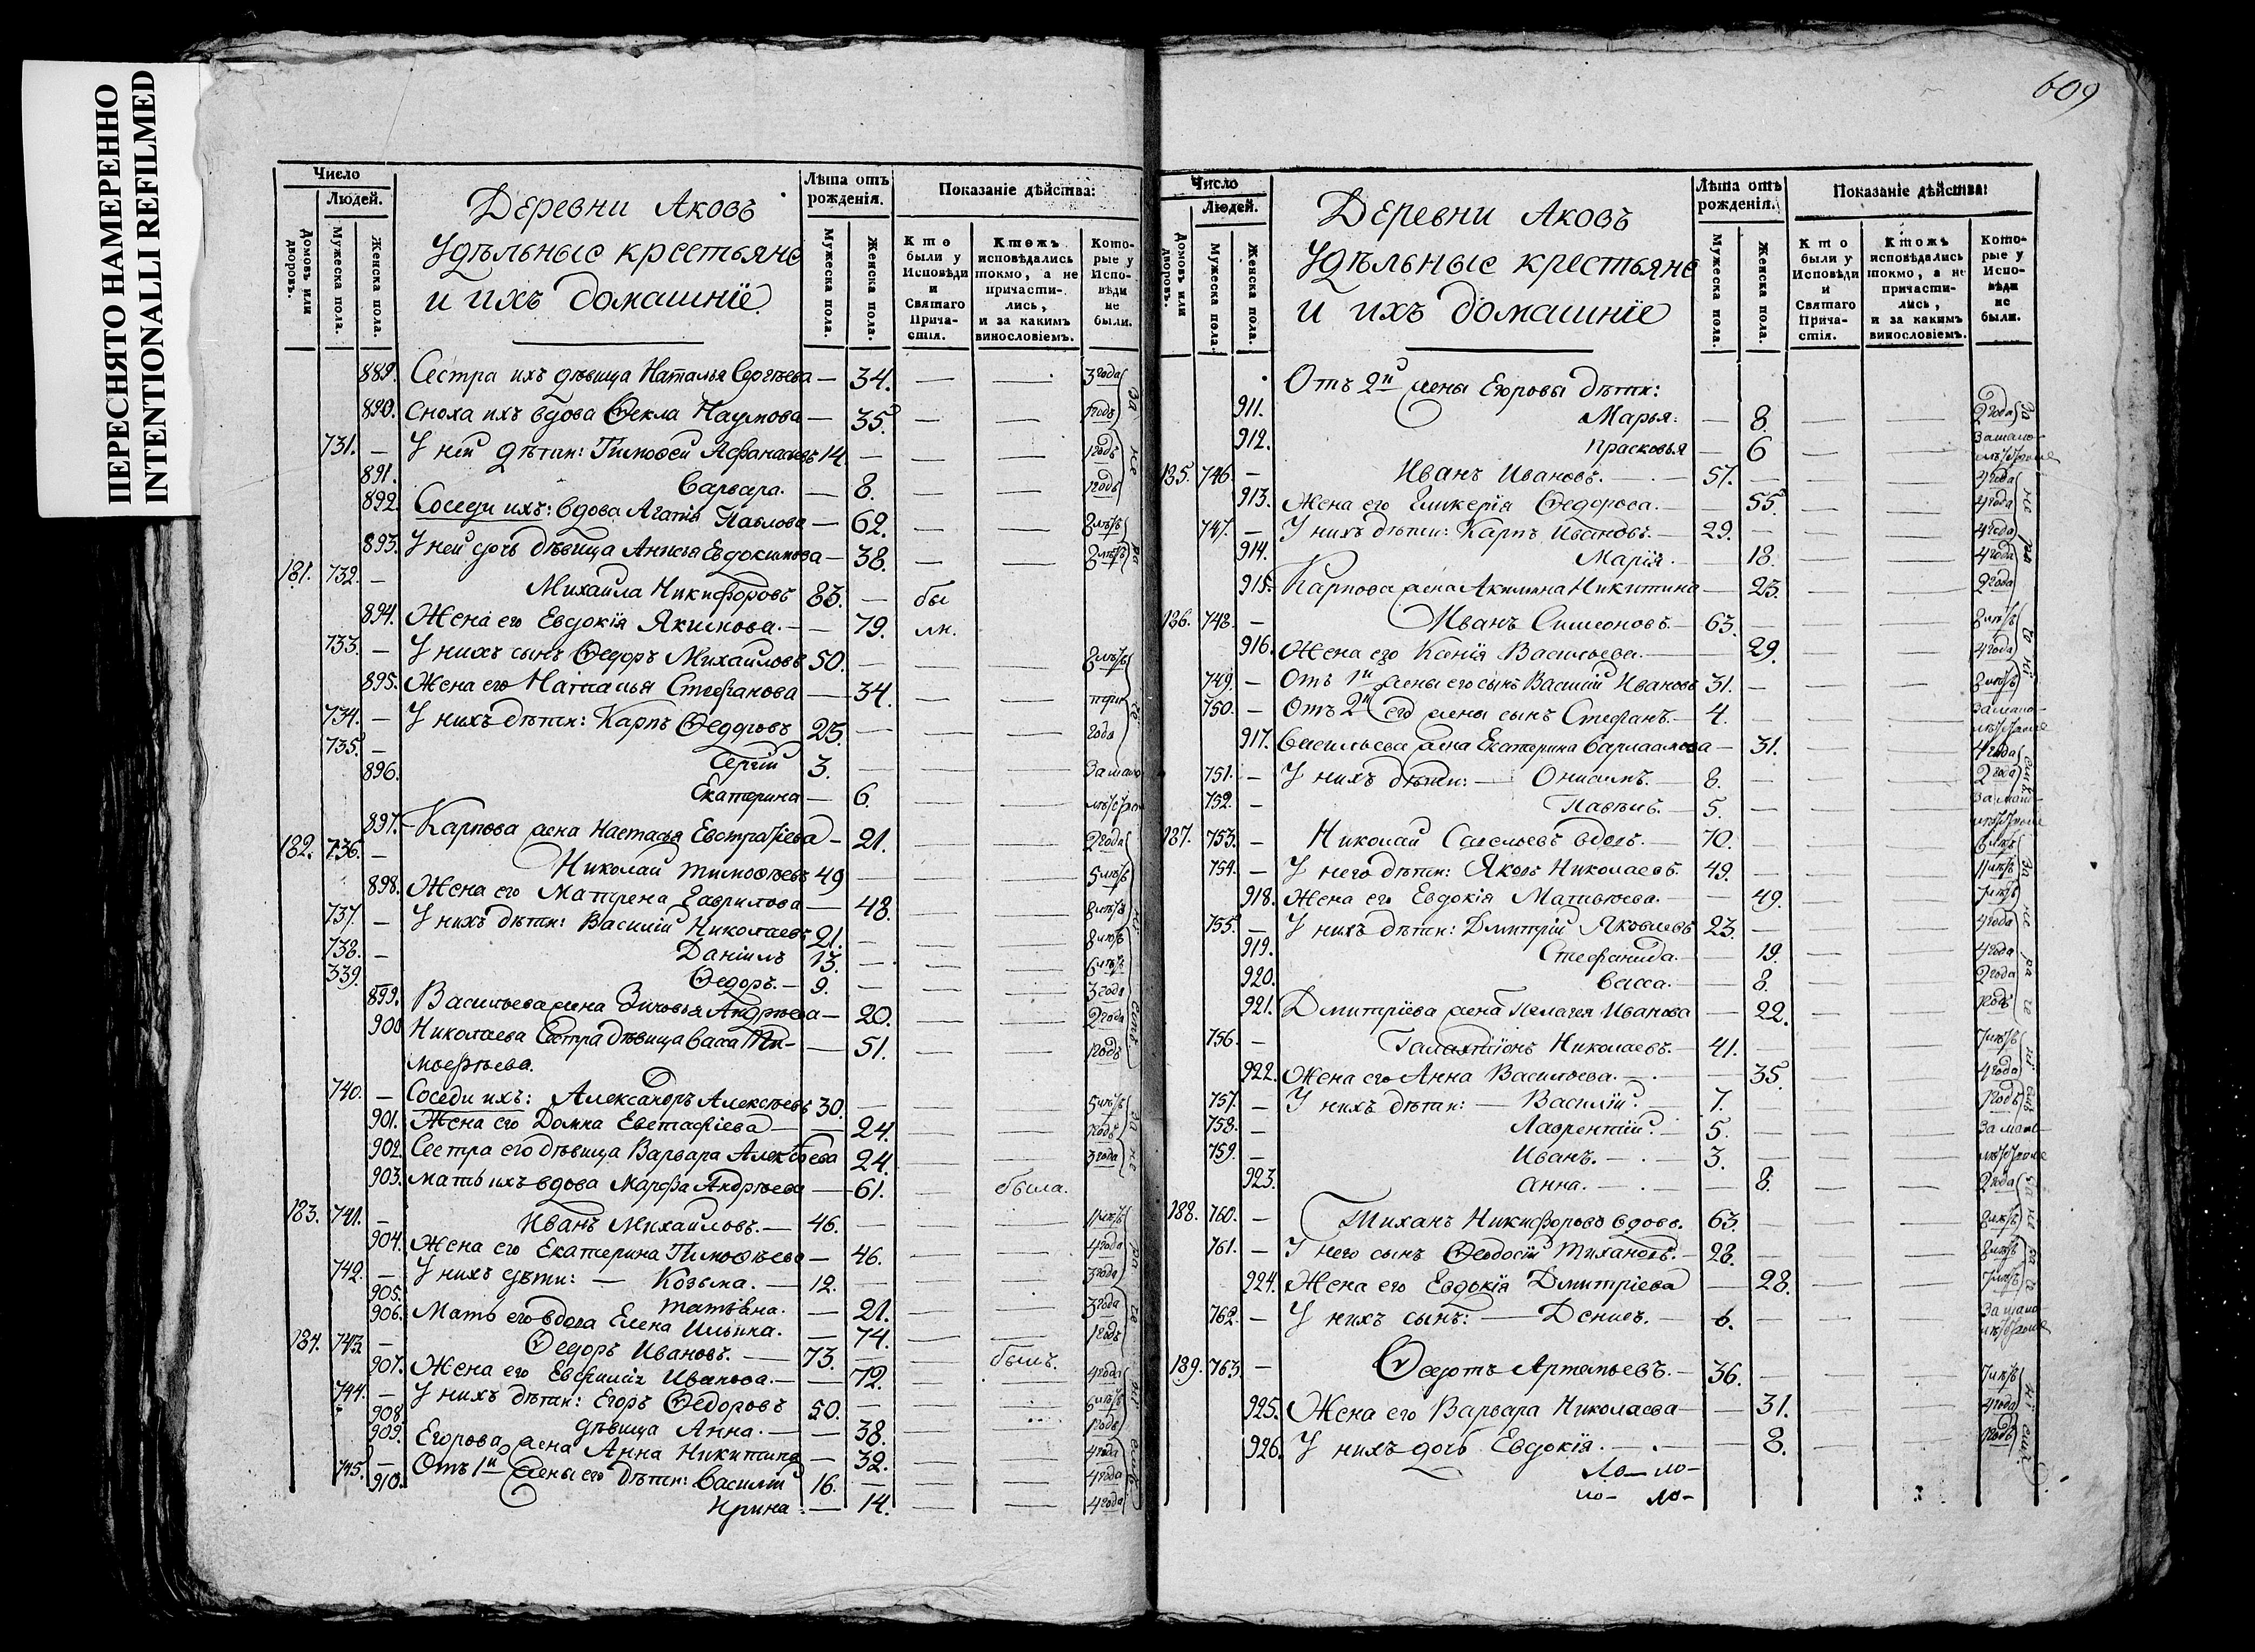 ПЕРЕСНЯТО НАМЕРЕННО
INTENTIONALLI REFILMED
Число
Людей.
Домовъ или дворовъ.
Мужеска пола.
Женска пола.
Деревни Аковъ
Удѣльные крестьяне
и ихъ домашніе
Лѣта отъ рожденія.
Мужеска пола.
Женска пола.
Показаніе дѣйства:
Кто были у Исповѣди и Святаго Прича-стія.
Ктожъ исповѣдались токмо, а не причасти-лись, и за какимъ винословіемъ.
Кото-рые у Испо-вѣди не были.
889. Сестра ихъ дѣвица Наталья Сергѣева — 34. — — 3 года
890. Сноха ихъ вдова Ѳекла Наумова — 35. — — годъ
731. — У ней дѣти: Тимоѳей Аѳанасьевъ 14. — — — 1 годъ
891. Варвара. — 8. — — 1 годъ
892. Соседи ихъ: вдова Агаѳія Павлова — 62. — — 8 лѣтъ
893. У ней дочь дѣвица Анисія Евдокимова — 38. — — 8 лѣтъ
181. 732. — Михаила Никифоровъ 83. — бы
894. Жена его Евдокія Якимова. — 79. ли.
733. — У нихъ сынъ Ѳедоръ Михайловъ 50. — — — 8 лѣтъ
895. Жена его Наталья Стефанова — 34. — — три
734. — У нихъ дѣти: Карпъ Ѳедоровъ 23. — — — года
735. — Сергій 3. — — — За мало
896. Екатерина — 6. — —
897. Карпова жена Настасья Евстратіева — 21. — — 2 года
182. 736. — Николай Тимоѳѣевъ 49 — — — 5 лѣтъ
898. Жена его Матрена Гаврилова — 48. — — 8 лѣтъ
737. — У нихъ дѣти: Василій Николаевъ 21. — — — 8 лѣтъ
738. — Даніилъ 13. — — — 6 лѣтъ
339. Ѳедоръ. — 9. — — — 3 года
899. Васильева жена Зиновья Андрѣева — 20. — — 2 года
900. Николаева Сестра дѣвица Васа Ти- — 51. — — 1 годъ
моѳѣева.
740. — Соседи ихъ: Александръ Алексѣевъ 30. — — — 5 лѣтъ
901. Жена его Домна Евстафіева — 24. — — 1 годъ
902. Сестра его дѣвица Варвара Алексѣева 24. — — 3 года
903. Мать ихъ вдова Марфа Андрѣева — 61. — была.
183. 741. — Иванъ Михайловъ. — 46. — — — 11 лѣтъ
904. Жена его Екатерина Тимоѳѣева — 46. — — 4 года
742. — У нихъ дѣти: — Козьма. — 12. — — — 3 года
905. Татьяна. — 21. — — 3 года
906. Мать его вдова Елена Ильина. — 74. — — 1 годъ
184. 743. — Ѳедоръ Ивановъ. — 73. — — былъ.
907. Жена его Евфимія Иванова. — 72. — — 4 года
744. — У нихъ дѣти: Егоръ Ѳедоровъ 50. — — — 6 лѣтъ
908. дѣвица Анна. — 38. — — 1 годъ
909. Егорова жена Анна Никитина — 32. — — 4 года
745. — Отъ 1й жены его дѣти: Василій 16. — — — 4 года
910. Ирина — 14. — — 4 года
609
Число
Людей.
Домовъ или дворовъ.
Мужеска пола.
Женска пола.
Деревни Аковъ
Удѣльные крестьяне
и ихъ домашніе
Лѣта отъ рожденія.
Мужеска пола.
Женска пола.
Показаніе дѣйства:
Кто были у Исповѣди и Святаго Прича-стія.
Ктожъ исповѣдались токмо, а не причасти-лись, и за какимъ винословіемъ.
Кото-рые у Испо-вѣди не были.
Отъ 2й жены Егоровы дѣти:
911. Марья: — 8. — — 2 года
912. Прасковья — 6 — — За мало-
185. 746. — Иванъ Ивановъ. — 57. — — — 4 года
913. Жена его Гликерія Ѳедорова. — 55. — — 4 года
747. — У нихъ дѣти: Карпъ Ивановъ. — 29. — — — 4 года
914. Марія. — 18. — — 4 года
915. Карпова жена Акилина Никитина — 23. — — 2 года
186. 748. — Иванъ Симеоновъ. — 63. — — — 8 лѣтъ
916. Жена его Ксенія Васильева. — 29. — — 4 года
749. — Отъ 1й жены его сынъ Василій Ивановъ 31. — — — 8 лѣтъ
750. — Отъ 2й его жены сынъ Стефанъ. — 4. — — — За мало-
917. Васильева жена Екатерина Варлаамова — 31. — — 4 года
751. — У нихъ дѣти: — Онисимъ. — 8. — — — 2 года
752. — Павелъ. — 5. — — — За мало-
187. 753. — Николай Савельевъ вдовъ. — 70. — — — 6 лѣтъ
754. — У него дѣти: Яковъ Николаевъ. 49. — — — 11 лѣтъ
918. Жена его Евдокія Матвѣева. — 49. — — 7 лѣтъ
755. — У нихъ дѣти: Дмитрій Яковлевъ 23. — — — 4 года
919. Стефанида. — 19. — — 4 года
920. Васса. — 8. — — 2 года
921. Дмитріева жена Пелагея Иванова — 22. — — 1 годъ
756. — Галактіонъ Николаевъ. — 41. — — — 7 лѣтъ
922. Жена его Анна Васильева. — 35. — — 4 года
757. — У нихъ дѣти: — Василій. — 7. — — — 1 годъ
758. — Лаврентій. — 5. — — — За мало-
759. — Иванъ. — 3. — — —
923. Анна. — 8. — — 2 года
188. 760. — Тиханъ Никифоровъ вдовъ. 63. — — — 8 лѣтъ
761. — У него сынъ Ѳеодосій Тихановъ. — 28. — — — 8 лѣтъ
924. Жена его Евдокія Дмитріева — 28. — — 7 лѣтъ
762. — У нихъ сынъ: — Денисъ. — 6. — — — За мало-
189. 763. — Ѳедотъ Артемьевъ. — 36. — — — 7 лѣтъ
925. Жена его Варвара Николаева — 31. — — 4 года
926. У нихъ дочь Евдокія. — 8. — — 1 годъ